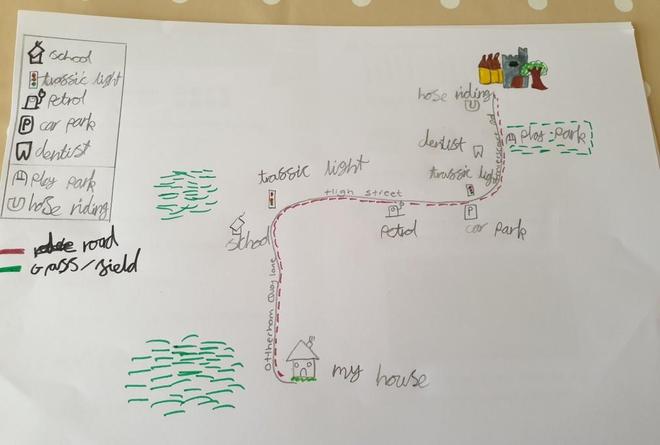 school
trassic light
Petrol
P car park
dentist
Play park
U hose riding
road
Grass/sield
hose riding
U
dentist
Play park
trassic light
trassic light
High street
school
Petrol
P
car park
Ottherham Quay lane
my house